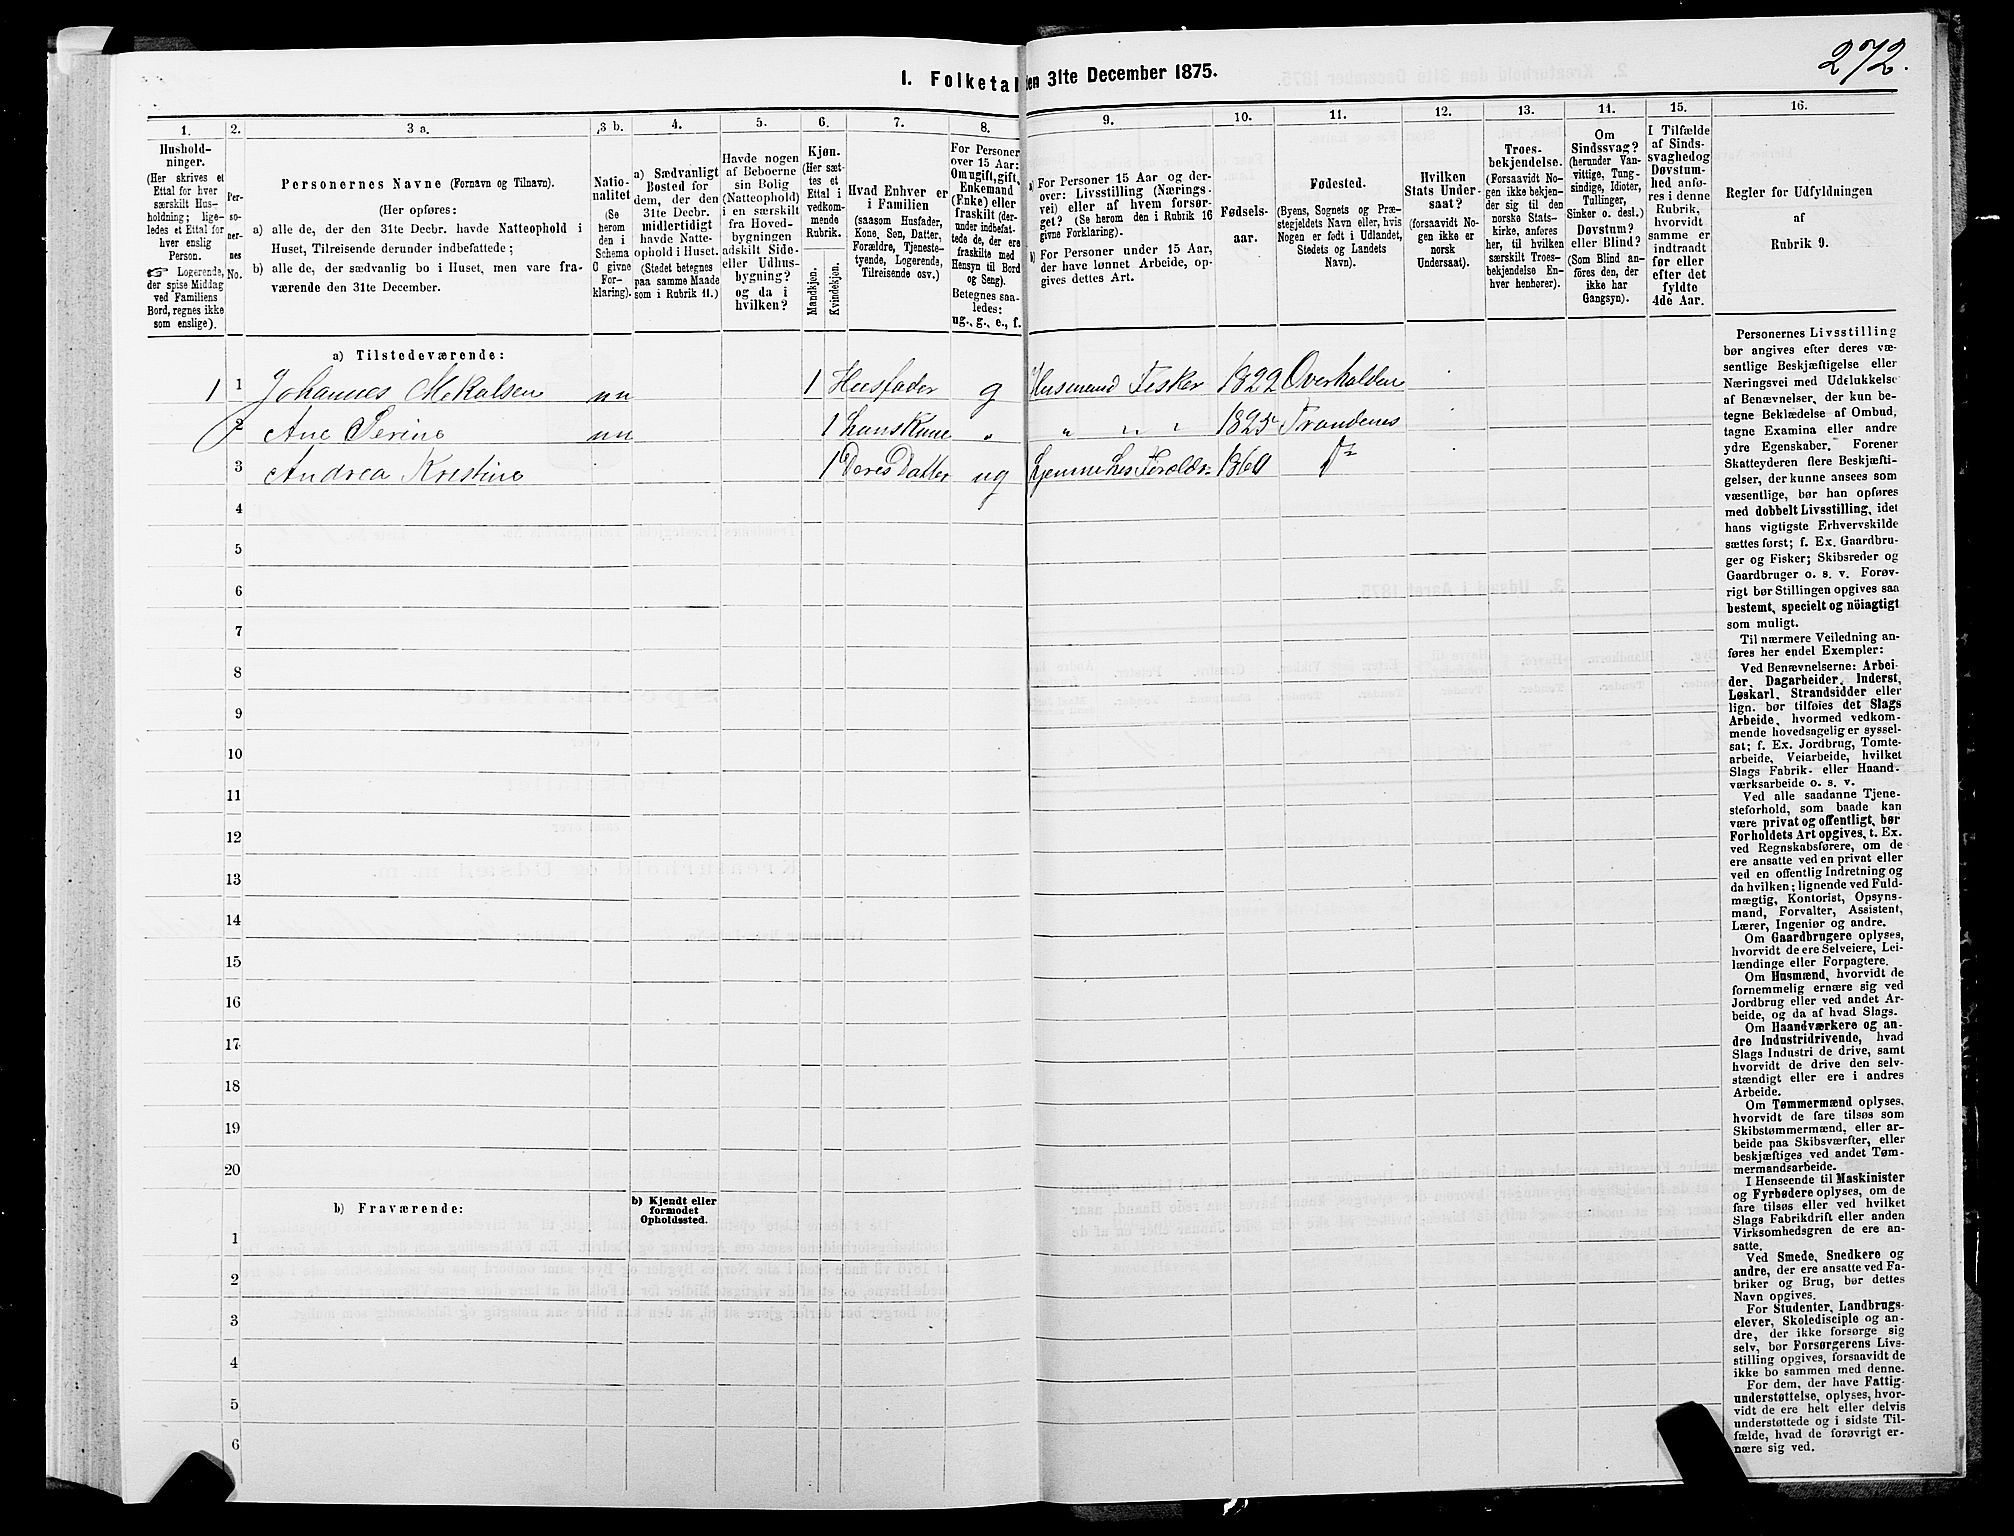 272.
I. Folketal den 31te December 1875.
1. 2. 3 a. 3 b. 4. 5. 6. 7. 8. 9. 10. 11. 12. 13. 14. 15. 16.
Hushold-
ninger.
(Her skrives et
Ettal for hver
særskilt Hus-
holdning; lige-
ledes et Ettal for
hver enslig
Person.
☞ Logerende,
der spise Middag
ved Familiens
Bord, regnes ikke
som enslige).
Per-
so-
ner-
nes
No.
Personernes Navne (Fornavn og Tilnavn).
(Her opføres:
a) alle de, der den 31te Decbr. havde Natteophold i
Huset, Tilreisende derunder indbefattede;
b) alle de, der sædvanlig bo i Huset, men vare fra-
værende den 31te December.
Natio-
nalitet
(Se
herom
den i
Schema
C givne
For-
klaring).
a) Sædvanligt
Bosted for
dem, der den
31te Decbr.
midlertidigt
havde Natte-
ophold i Huset.
(Stedet betegnes
paa samme Maade
som i Rubrik 11.)
Havde nogen
af Beboerne
sin Bolig
(Natteophold)
i en særskilt
fra Hoved-
bygningen
adskilt Side-
eller Udhus-
bygning?
og da i
hvilken?
Kjøn.
(Her sæt-
tes et
Ettal i
vedkom-
mende
Rubrik.
Mandkjøn.
Kvindekjøn.
Hvad Enhver er
i Familien
(saasom Husfader,
Kone, Søn, Datter,
Forældre, Tjeneste-
tyende, Logerende,
Tilreisende osv.)
For Personer
over 15 Aar:
Om ugift, gift,
Enkemand
(Enke) eller
fraskilt (der-
under indbefat-
tede de, der ere
fraskilte med
Hensyn til Bord
og Seng).
Betegnes saa-
ledes:
ug., g., e., f.
a) For Personer 15 Aar og der-
over: Livsstilling (Nærings-
vei) eller af hvem forsør-
get? (Se herom den i Rubrik 16
givne Forklaring).
b) For Personer under 15 Aar,
der have lønnet Arbeide, op-
gives dettes Art.
Fødsels-
aar.
Fødested.
(Byens, Sognets og Præ-
stegjeldets Navn eller, hvis
Nogen er født i Udlandet,
Stedets og Landets
Navn).
Hvilken
Stats Under-
saat?
(forsaavidt No-
gen ikke er
norsk
Undersaat).
Troes-
bekjendelse.
(Forsaavidt No-
gen ikke bekjen-
der sig til den
norske Stats-
kirke, anføres
her, til hvilken
særskilt Troes-
bekjendelse En-
hver henhører).
Om
Sindssvag?
(herunder Van-
vittige, Tung-
sindige, Idioter,
Tullinger,
Sinker o. desl.)
Døvstum?
eller Blind?
(Som Blind an-
føres den, der
ikke har
Gangsyn).
I Tilfælde
af Sinds-
svaghed og
Døvstum-
hed anfø-
res i denne
Rubrik,
hvorvidt
samme er
indtraadt
før eller
efter det
fyldte
4de Aar.
Regler for Udfyldningen
af
Rubrik 9.
a) Tilstedeværende:
1 1 Johannes Mekalsen nn 1 Husfader g Husmand Fisker 1822 Overhalden
2 Ane Serine nn 1 hans Kone „ „ „ „ 1825 Trondenes
3 Andrea Kristine 1 Deres Datter ug 1860
4
5
6
7
8
9
10
11
12
13
14
15
16
17
18
19
20
b) Fraværende:
b) Kjendt eller
formodet
Opholdssted.
1
2
3
4
5
6
Personernes Livsstilling
bør angives efter deres væ-
sentlige Beskjæftigelse eller
Næringsvei med Udelukkelse
af Benævnelser, der kun be-
tegne Beklædelse af Ombud,
tagne Examina eller andre
ydre Egenskaber. Forener
Skatteyderen flere Beskjæfti-
gelser, der kunne ansees som
væsentlige, bør han opføres
med dobbelt Livsstilling, idet
hans vigtigste Erhvervskilde
sættes først; f. Ex. Gaardbru-
ger og Fisker; Skibsreder og
Gaardbruger o. s. v. Forøv-
rigt bør Stillingen opgives saa
bestemt, specielt og nöiagtigt
som muligt.
Til nærmere Veiledning an-
føres her endel Exempler:
Ved Benævnelserne: Arbei-
der, Dagarbeider, Inderst,
Løskarl, Strandsidder eller
lign. bør tilføies det Slags
Arbeide, hvormed vedkom-
mende hovedsagelig er syssel-
sat; f. Ex. Jordbrug, Tomte-
arbeide, Veiarbeide, hvilket
Slags Fabrik- eller Haand-
værksarbeide o. s. v.
Ved alle saadanne Tjene-
steforhold, som baade kan
være privat og offentligt, bør
Forholdets Art opgives, t. Ex.
ved Regnskabsførere, om de
ere ansatte ved en privat eller
ved en offentlig Indretning og
da hvilken; lignende ved Fuld-
mægtig, Kontorist, Opsyns-
mand, Forvalter, Assistent,
Lærer, Ingeniør og andre.
Om Gaardbrugere oplyses,
hvorvidt de ere Selveiere, Lei-
lændinge eller Forpagtere.
Om Husmænd, hvorvidt de
fornemmelig ernære sig ved
Jordbrug eller ved andet Ar-
beide, og da af hvad Slags.
Om Haandværkere og an-
dre Industridrivende, hvad
Slags Industri de drive, samt
hvorvidt de drive den selv-
stændigt eller ere i andres
Arbeide.
Om Tømmermænd oplyses,
hvorvidt de fare tilsøs som
Skibstømmermænd, eller ar-
beide paa Skibsværfter, eller
beskjæftiges ved andet Tøm-
mermandsarbeide.
I Henseende til Maskinister
og Fyrbødere oplyses, om de
fare tilsøs eller ved hvilket
Slags Fabrikdrift eller anden
Virksomhedsgren de ere an-
satte.
Ved Smede, Snedkere og
andre, der ere ansatte ved Fa-
briker og Brug, bør dettes
Navn opgives.
For Studenter, Landbrugs-
elever, Skoledisciple og an-
dre, der ikke forsørge sig
selv, bør Forsørgerens Livs-
stilling opgives, forsaavidt de
ikke bo sammen med denne.
For dem, der have Fattig-
understøttelse, oplyses, hvor-
vidt de ere helt eller delvis
understøttede og i sidste Til-
fælde, hvad de forøvrigt er-
nære sig ved.